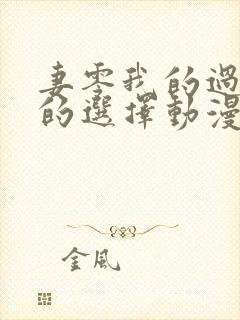 妻零我的過
的選擇動漫
金風